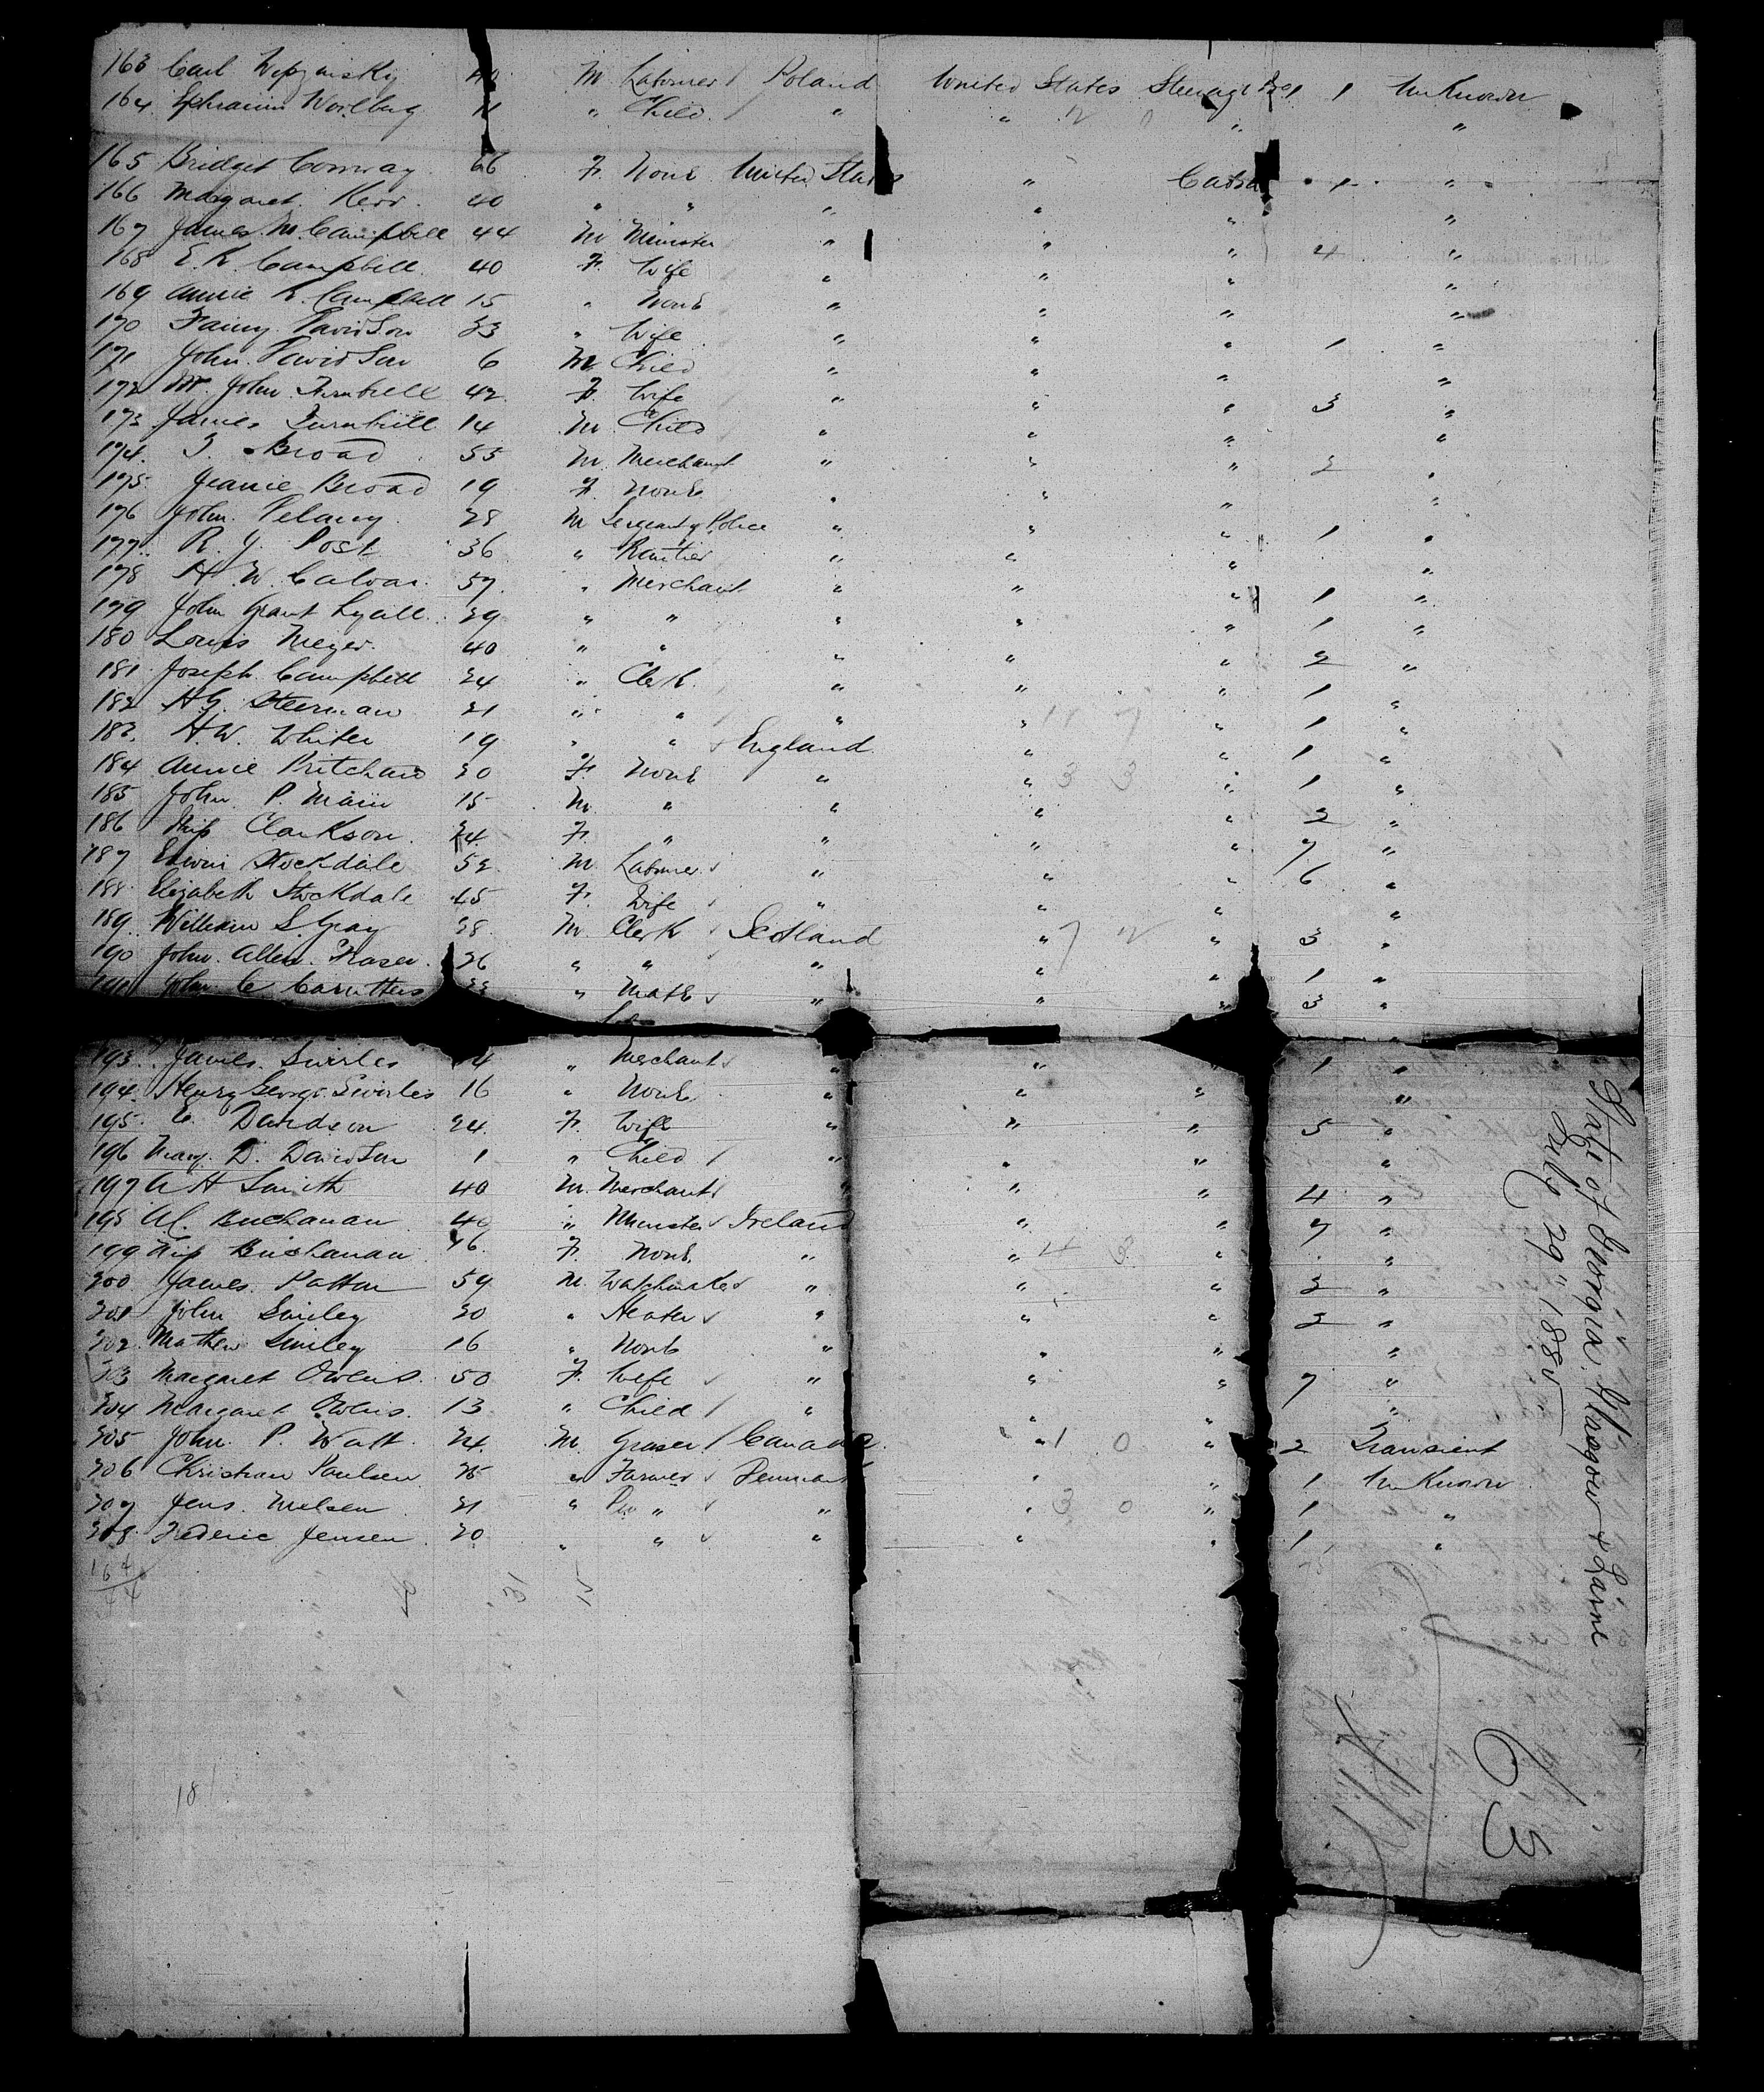 163 Carl 40 M Laborer Poland United States Steerage 1 Unknown
164 Ephraim 11 " Child " " " "
165 Bridget Conway 66 F. None United States " Cabin 1 "
166 Margaret Kerr 40 " " " " " "
167 James M. Campbell 44 M Minister " " " 4 "
168 E. R. Campbell 40 F. Wife " " " "
169 Annie R. Campbell 15 " None " " " "
170 Fanny Davidson 33 " Wife " " " 1 "
171 John Davidson 6 M Child " " " "
172 Mrs. John Turnbull 42 F. Wife " " " 3 "
173 James Turnbull 14 M Child " " " "
174. J. Broad 55 M. Merchant " " " 2 "
175. Jeanie Broad 19 F. None " " " "
176 John Delaney 28 M Sergeant of Police " " " 1 "
177. R. J. Post 36 " " " " "
178 H. W. 57 " Merchant " " " 1 "
179 John Grant Lyall 29 " " " " " 1 "
180 Louis Meyer 40 " " " " " 2 "
181 Joseph Campbell 24 " Clerk " " " 1 "
182 H. G. Steerman 21 " " " " 11 7 " 1 "
183. H. W. White 19 " " England " " 1 "
184 Annie Pritchard 20 F. None " " 3 3 " 1 "
185 John P. Main 15 M. " " " " 2 "
186 Miss Clarkson 24 F. " " " " 7 "
187 Edwin Stockdale 52 M Laborer " " " 6 "
188 Elizabeth Stockdale 45 F. Wife " " " "
189. William S. Gray 28 M. Clerk Scotland " 7 2 " 3 "
190 John Allen Fraser 26 " " " " " 1 "
191 John C Carruthers " Mate " " " 3 "
193. James Swirles 4 " Merchant " " " 1 "
194. Henry George Swirles 16 " None " " " "
195. C. Davidson 24 F. Wife " " " 5 "
196 Mary D. Davidson 1 " Child " " " "
197 A H Smith 40 M. Merchant " " " 4 "
198 Al. Buchanan 40 " Minister Ireland " " 7 "
199 Miss Buchanan 46 F. None " " 4 3 " "
200 James Patton 59 M. Watchmaker " " " 2 "
201 John Smiley 20 " Heater " " " 2 "
202. Mathew Smiley 16 " None " " " "
203 Margaret Owens 50 F. Wife " " " 7 "
204 Margaret Owens 13 " Child " " " "
205 John P. Watt 24 M. Groser Canada " 1 0 " 2 Transient
206 Christian Paulsen 25 " Farmer Denmark " " 1 Unknown
207 Jens Nielsen 21 " " " " 3 0 " 1 "
208 Frederic Jensen 20 " " " " " 1 "
164
44
18
State of Georgia Glasgow & Larne
July 29" 1880
63